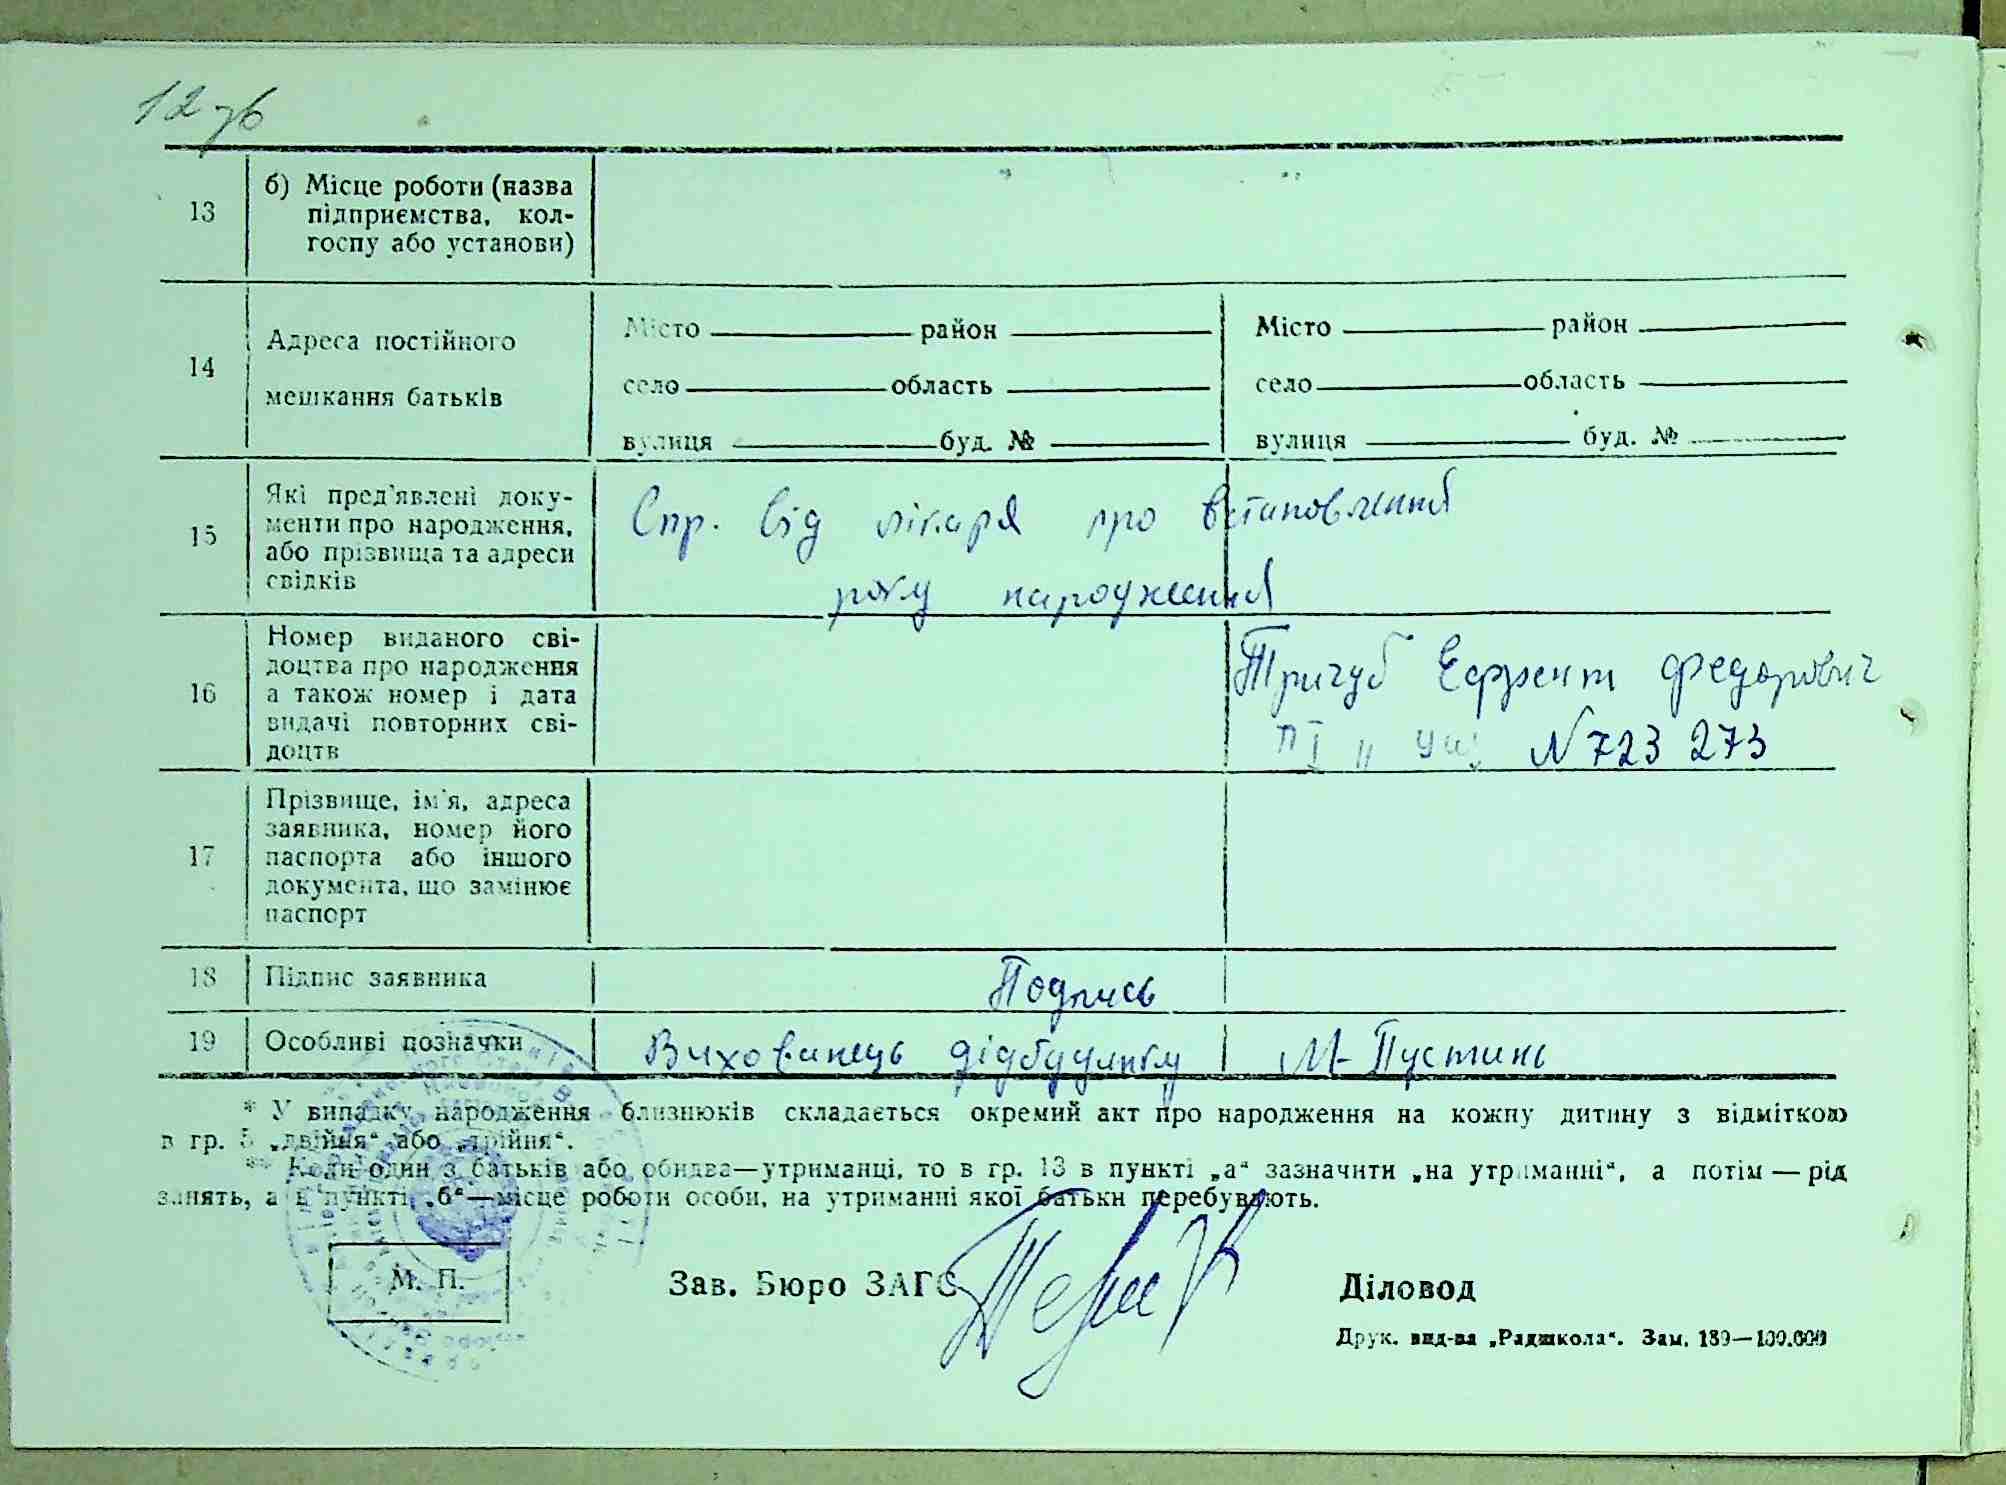 12 зв
13
б) Місце роботи (назва
підприємства, кол-
госпу або установи)
14
Адреса постійного
мешкання батьків
Місто район
село область
вулиця буд. №
Місто район
село область
вулиця буд. №
15
Які пред'явлені доку-
менти про народження,
або прізвища та адреси
свідків
Спр. від лікаря про встановлення
року народження
16
Номер виданого сві-
доцтва про народження
а також номер і дата
видачі повторних сві-
доцтв
Тригуб Федорович
N 723 273
17
Прізвище, ім'я, адреса
заявника, номер його
паспорта або іншого
документа, що замінює
паспорт
18
Підпис заявника
Подпись
19
Особливі позначки
Вихованець М-Пустинь
* У випадку народження близнюків складається окремий акт про народження на кожну дитину з відміткою
в гр. 5 „двійня“ або „трійня“.
** Коли один з батьків або обидва—утриманці, то в гр. 13 в пункті „а“ зазначити „на утриманні“, а потім — рід
занять, а в пункті „б“—місце роботи особи, на утриманні якої батьки перебувають.
М. П.
Зав. Бюро ЗАГС
Діловод
Друк. вид-ва „Радшкола“. Зам. 189—100.000